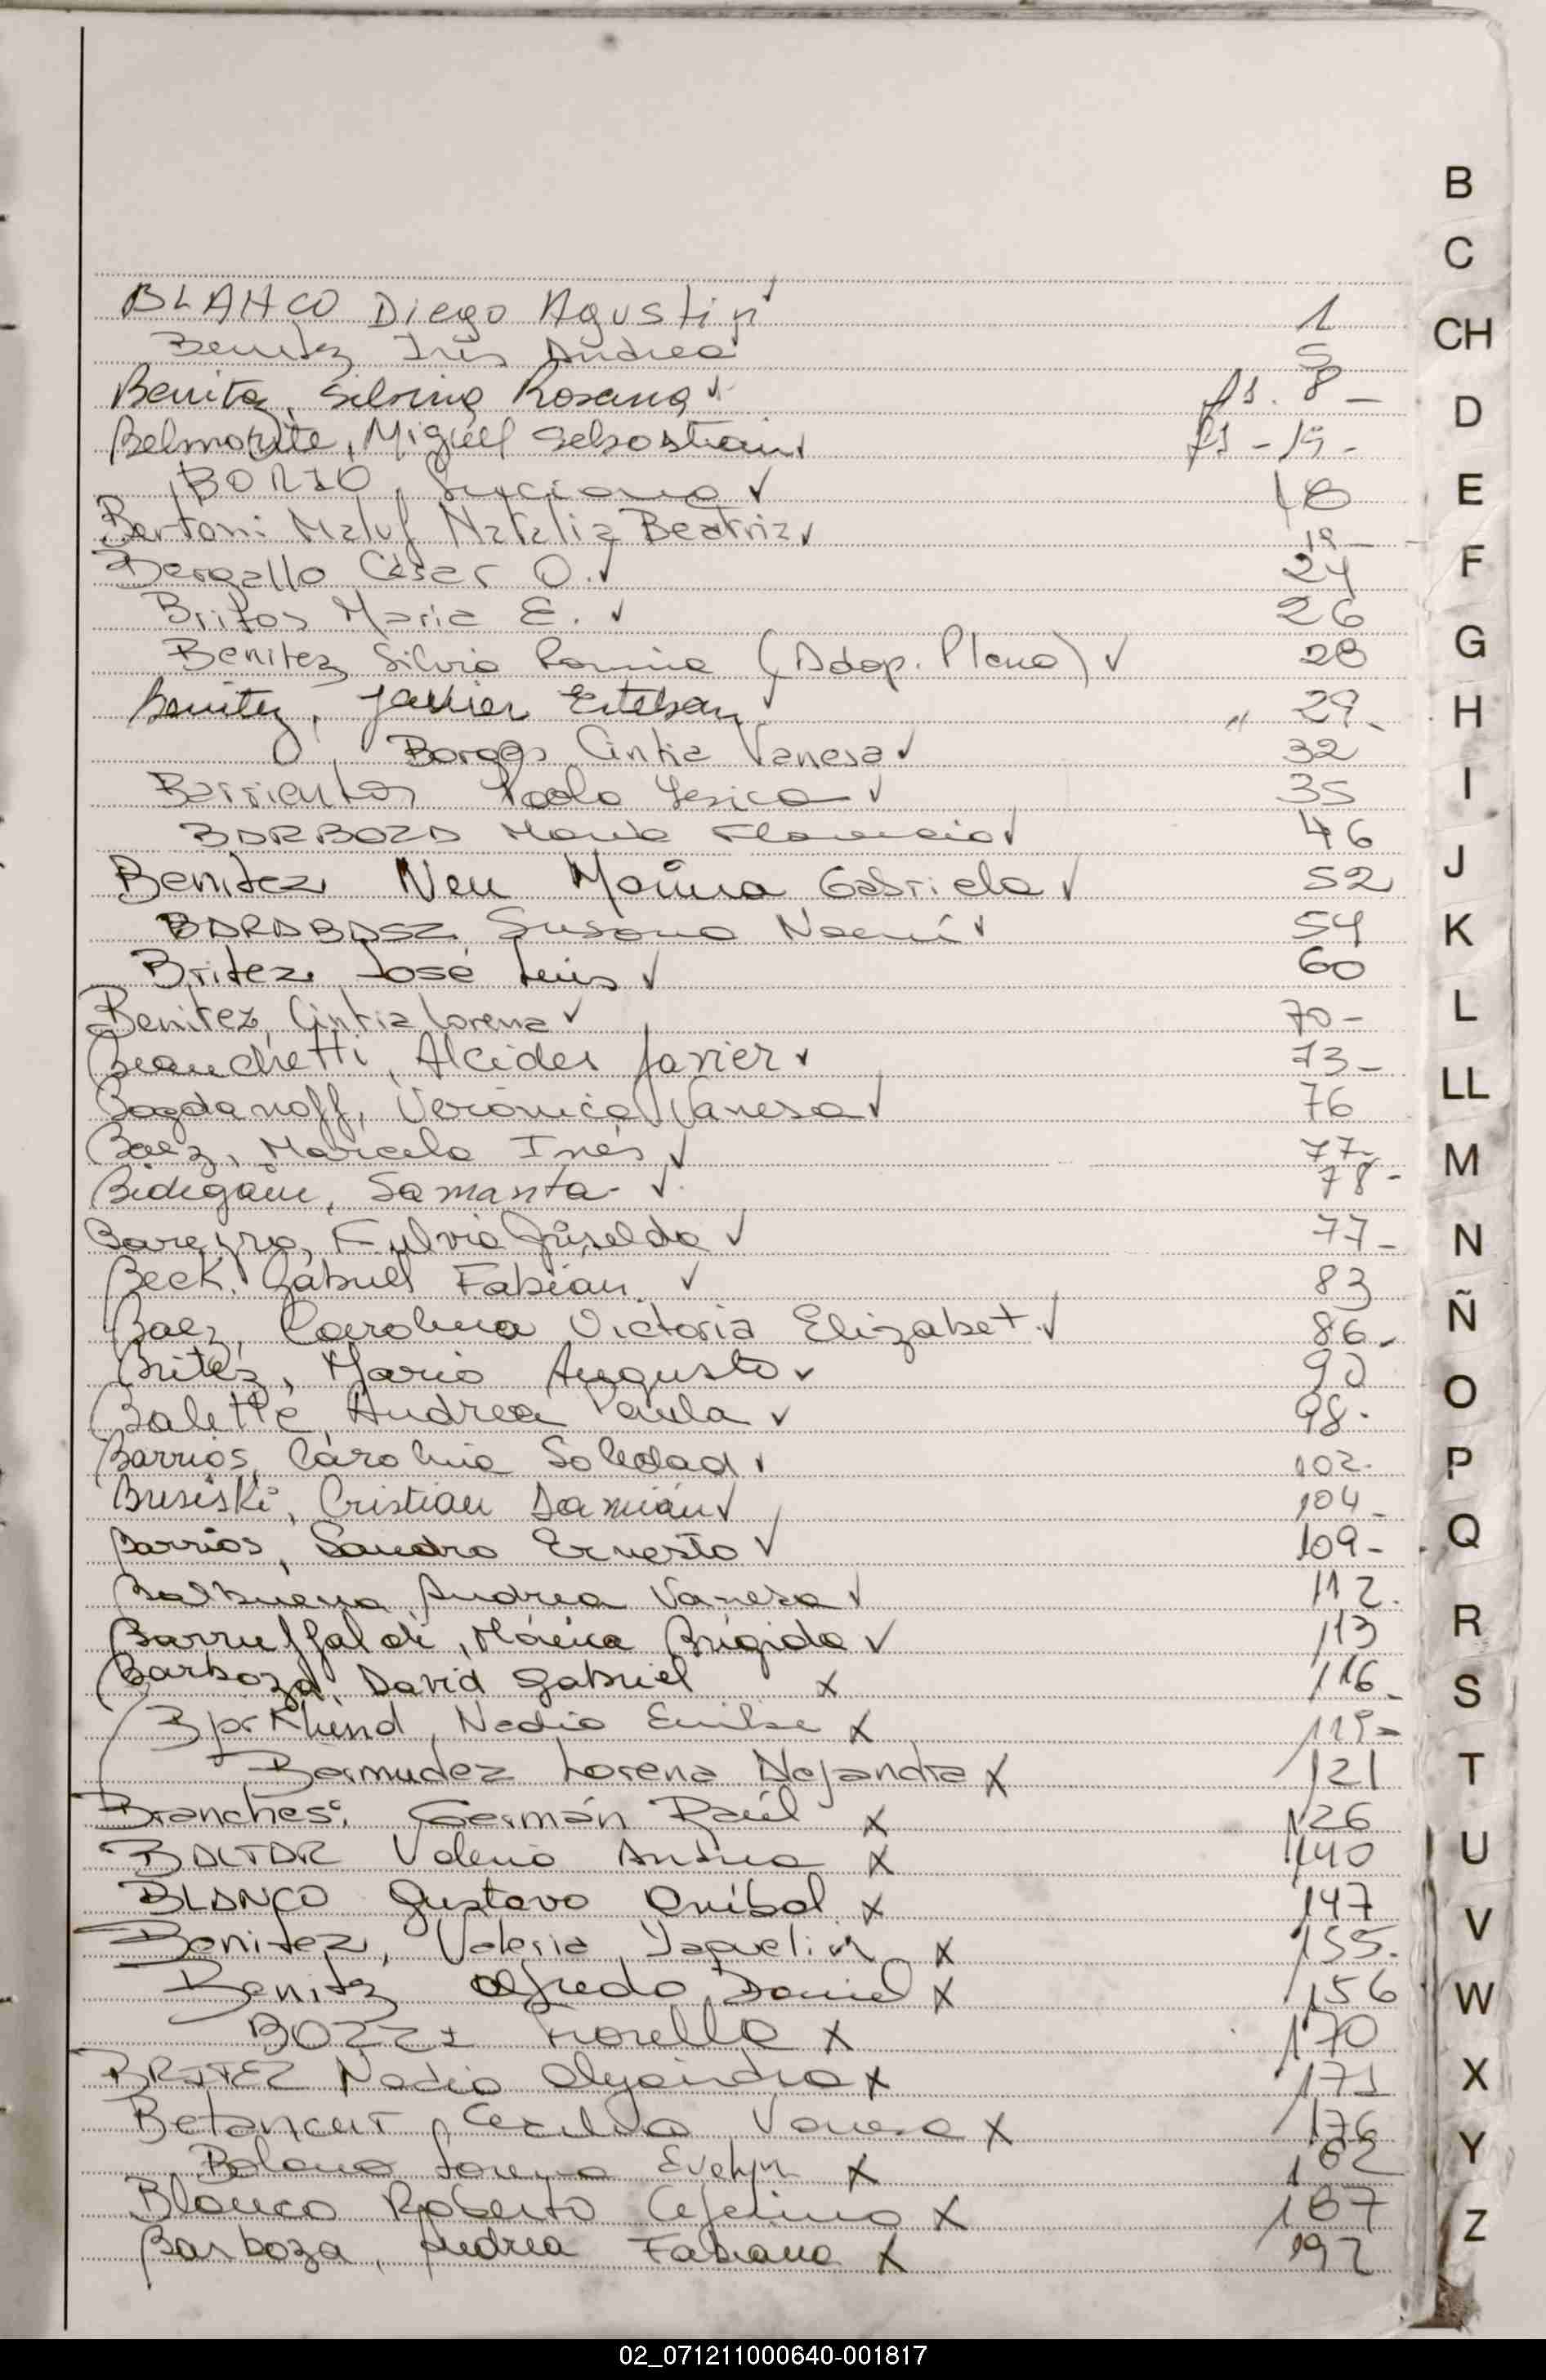 BLANCO Diego Agustin ✓ 1
Benitez Iris Andrea 5
Benitez, Silvina Rosana ✓ fs. 8 -
Belmonte, Miguel Sebastian ✓ fs - 15 -
BORJO, Luciana ✓ 18
Bertoni Maluf Natalia Beatriz ✓ 19 -
Bergallo César O. ✓ 24
Britos Maria E. ✓ 26
Benitez Silvia Romina (Adop. Plena) ✓ 28
Benitez, Javier Esteban ✓ " 29 -
Borges Cintia Vanesa ✓ 32
Barrientos Paola Yesica ✓ 35
BARBOZA María Florencia ✓ 46
Benitez Neu Marina Gabriela ✓ 52
BARABASZ Susana Noemí ✓ 54
Britez José Luis ✓ 60
Benitez, Cintia Lorena ✓ 70 -
Bianchetti, Alcides Javier ✓ 73 -
Bogdanoff, Verónica Vanesa ✓ 76
Baez, Marcela Inés ✓ 77 -
Bidegain, Samanta - ✓ 78 -
Bareyro, Fulvia Griselda ✓ 77 -
Beck, Gabriel Fabián ✓ 83
Baez, Carolina Victoria Elizabet ✓ 86 -
Britez, Mario Augusto ✓ 90
Balette, Andrea Paula ✓ 98 -
Barrios, Carolina Soledad ✓ 102 -
Brusiski, Cristian Damián ✓ 104 -
Barrios, Sandro Ernesto ✓ 109 -
Balbuena Andrea Vanesa ✓ 112.
Barruffaldi, Mónica Brígida ✓ 113
Barboza, David Gabriel x 116 -
Nadia Emilse x 119 -
Bermudez Lorena Alejandra x 121
Branchesi Germán Raúl x 126
BALTAR Valeria Andrea x 140
BLANCO Gustavo Anibal x 147
Benitez, Valeria Yaquelin x 155.
Benitez Alfredo Daniel x 156
BOZZI Fiorella x 170
BRITEZ Nadia Alejandra x 171
Betancur, Cecilia Vanesa x 176
Bolano Lorena Evelyn x 182
Blanco Roberto Ceferino x 187
Barboza, Andrea Fabiana x 192
B
C
CH
D
E
F
G
H
I
J
K
L
LL
M
N
Ñ
O
P
Q
R
S
T
U
V
W
X
Y
Z
02_071211000640-001817